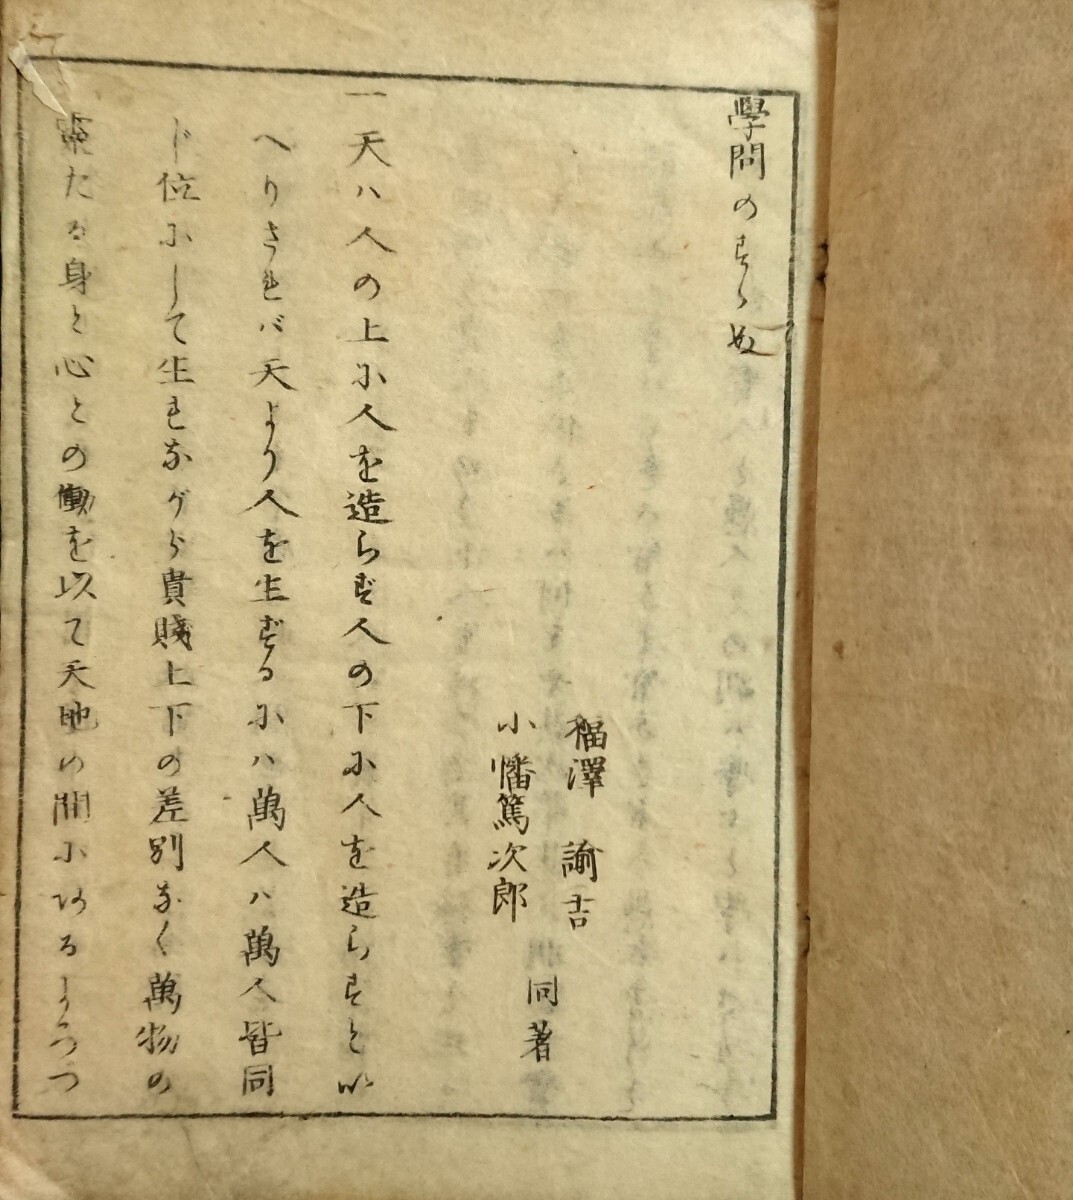 學問のすゝめ
福澤諭吉
小幡篤次郎
同著
一天ハ人の上に人を造らず人の下に人を造らずと以
へりされバ天より人を生ずるにハ萬人ハ萬人皆同
じ位にして生れながら貴賤上下の差別なく萬物の
靈たる身と心との働を以て天地の間にあるよろづ